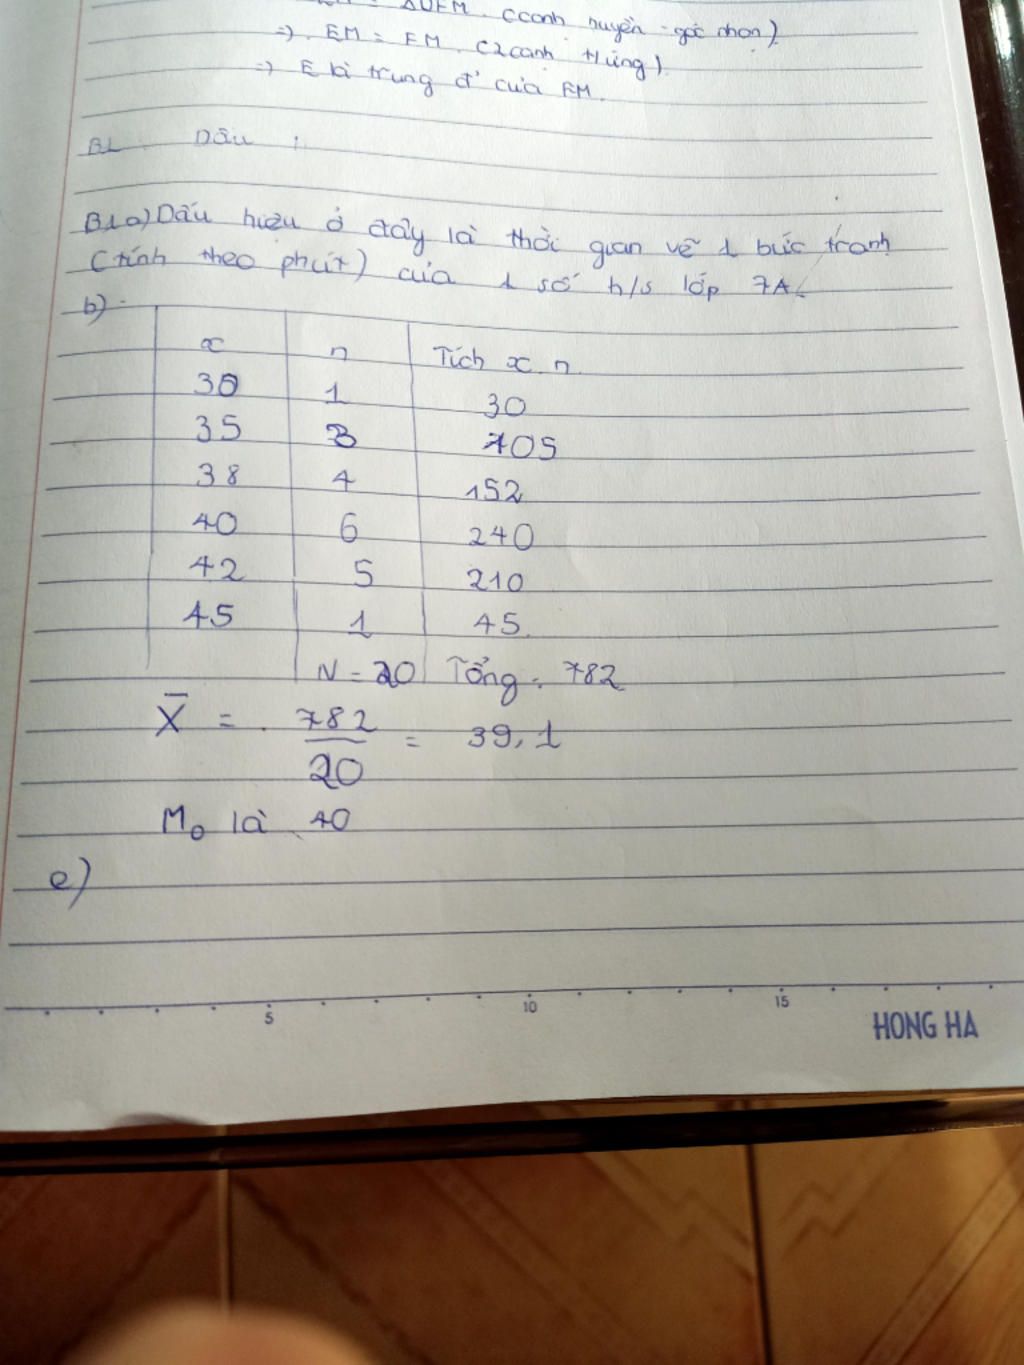 ΔOFM (canh huyền - góc nhọn)
=) EM = FM (2 canh tứng)
=) E là trung đ' của FM.
BL Dâu :
B1a) Dấu hiệu ở đây là thời gian vẽ 1 bức tranh
(tính theo phút) của 1 số h/s lớp 7A.
b)
x n Tích x.n
30 1 30
35 3 105
38 4 152
40 6 240
42 5 210
45 1 45
N = 20 Tổng: 782
X̄ = 782/20 = 39,1
M₀ là 40
e)
5 10 15
HONG HA